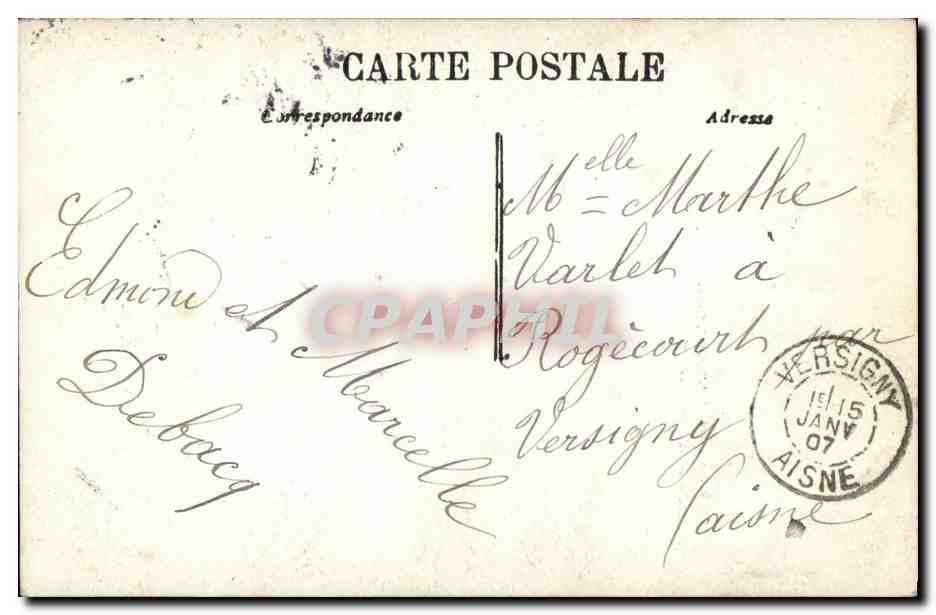 CARTE POSTALE
Correspondance
Adresse
Edmond et Marcelle
Debacq
Melle = Marthe
Varlet à
Rogécourt par
Versigny
(aisne
CPAPHIL
VERSIGNY
1E 15
JANV
07
AISNE